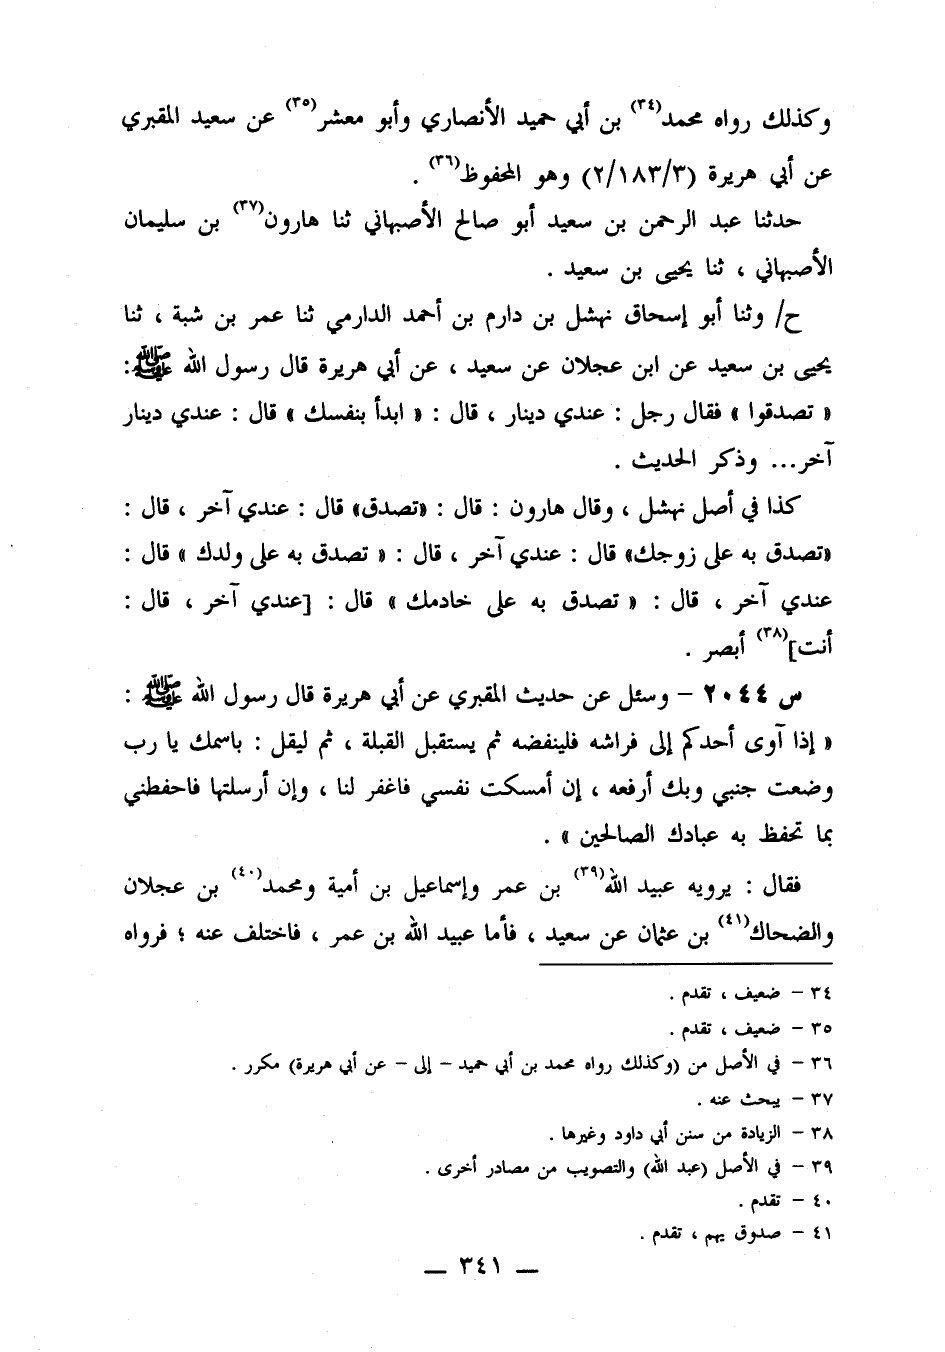 وكذلك رواه محمد(٣٤) بن أبي حميد الأنصاري وأبو معشر(٣٥) عن سعيد المقبري
عن أبي هريرة (٢/١٨٣/٣) وهو المحفوظ(٣٦) .
حدثنا عبد الرحمن بن سعيد أبو صالح الأصبهاني ثنا هارون(٣٧) بن سليمان
الأصبهاني ، ثنا يحيى بن سعيد .
ح/ وثنا أبو إسحاق نهشل بن دارم بن أحمد الدارمي ثنا عمر بن شبة ، ثنا
يحيى بن سعيد عن ابن عجلان عن سعيد ، عن أبي هريرة قال رسول الله ﷺ:
« تصدقوا » فقال رجل : عندي دينار ، قال : « ابدأ بنفسك » قال : عندي دينار
آخر... وذكر الحديث .
كذا في أصل نهشل ، وقال هارون : قال : «تصدق» قال : عندي آخر ، قال :
«تصدق به على زوجك» قال : عندي آخر ، قال : « تصدق به على ولدك » قال :
عندي آخر ، قال : « تصدق به على خادمك » قال : [عندي آخر ، قال :
أنت](٣٨) أبصر .
س ٢٠٤٤ - وسئل عن حديث المقبري عن أبي هريرة قال رسول الله ﷺ :
« إذا آوى أحدكم إلى فراشه فلينفضه ثم يستقبل القبلة ، ثم ليقل : باسمك يا رب
وضعت جنبي وبك أرفعه ، إن أمسكت نفسي فاغفر لنا ، وإن أرسلتها فاحفطني
بما تحفظ به عبادك الصالحين » .
فقال : يرويه عبيد الله(٣٩) بن عمر وإسماعيل بن أمية ومحمد(٤٠) بن عجلان
والضحاك(٤١) بن عثمان عن سعيد ، فأما عبيد الله بن عمر ، فاختلف عنه ؛ فرواه
٣٤ - ضعيف ، تقدم .
٣٥ - ضعيف ، تقدم .
٣٦ - في الأصل من (وكذلك رواه محمد بن أبي حميد - إلى - عن أبي هريرة) مكرر .
٣٧ - يبحث عنه .
٣٨ - الزيادة من سنن أبي داود وغيرها .
٣٩ - في الأصل (عبد الله) والتصويب من مصادر أخرى .
٤٠ - تقدم .
٤١ - صدوق يهم ، تقدم .
— ٣٤١ —